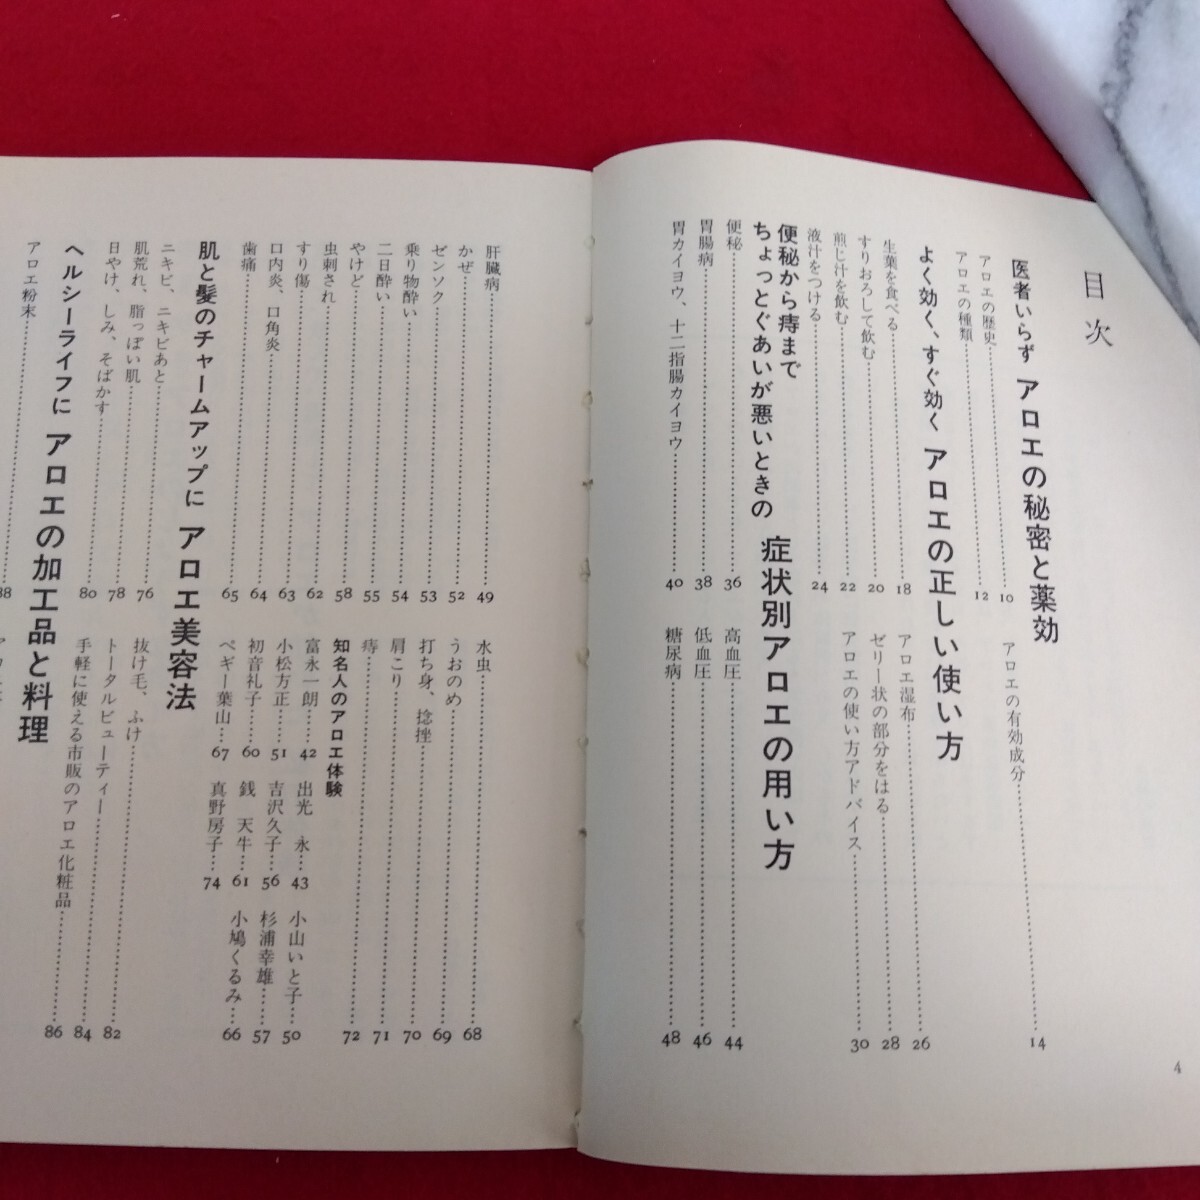 目次
医者いらず アロエの秘密と薬効
アロエの歴史 10
アロエの種類 12
アロエの有効成分 14
よく効く、すぐ効く アロエの正しい使い方
生葉を食べる 18
すりおろして飲む 20
煎じ汁を飲む 22
液汁をつける 24
アロエ湿布 26
ゼリー状の部分をはる 28
アロエの使い方アドバイス 30
便秘から痔まで
ちょっとぐあいが悪いときの 症状別アロエの用い方
便秘 36
胃腸病 38
胃カイヨウ、十二指腸カイヨウ 40
高血圧 44
低血圧 46
糖尿病 48
4
肝臓病 49
かぜ 52
ゼンソク 53
乗り物酔い 54
二日酔い 55
やけど 58
虫刺され 62
すり傷 63
口内炎、口角炎 64
歯痛 65
水虫 68
うおのめ 69
打ち身、捻挫 70
肩こり 71
痔 72
知名人のアロエ体験
富永一朗 42 出光 永 43 小山いと子 50
小松方正 51 吉沢久子 56 杉浦幸雄 57
初音礼子 60 銭 天牛 61 小鳩くるみ 66
ペギー葉山 67 真野房子 74
肌と髪のチャームアップに アロエ美容法
ニキビ、ニキビあと 76
肌荒れ、脂っぽい肌 78
日やけ、しみ、そばかす 80
抜け毛、ふけ 82
トータルビューティー 84
手軽に使える市販のアロエ化粧品 86
ヘルシーライフに アロエの加工品と料理
アロエ粉末 88